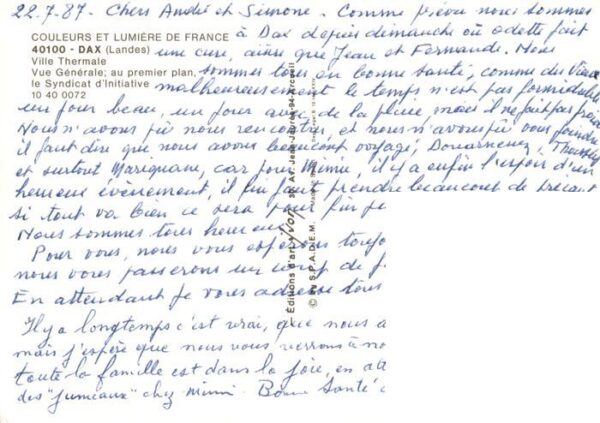 22.7.87. Chers André et Simone. Comme prévu nous sommes
à Dax depuis dimanche où odette fait
une cure, ainsi que Jean et Fernande. Nous
sommes tous en bonne santé, comme des Vieux
malheureusement le temps n'est pas formidable
un jour beau, un jour avec de la pluie, mais il ne fait pas froid
Nous n'avons pu nous rencontrer, et nous n'avons pu vous joindre
il faut dire que nous avons beaucoup voyagé, Douarnenez,
et surtout Marignane, car pour Mimie, il y a enfin l'espoir d'un
heureux évènement, il lui faut prendre beaucoup de
si tout va bien ce sera pour fin
Nous sommes tous heureux
Pour vous, nous vous espérons
nous vous passerons un coup de
En attendant je vous adresse tous
Il y a longtemps c'est vrai, que nous a
mais j'espère que nous vous verrons à no
toute la famille est dans la joie, en att
des "jumeaux" chez mimi. Bonne Santé
COULEURS ET LUMIÈRE DE FRANCE
40100 - DAX (Landes)
Ville Thermale
Vue Générale; au premier plan,
le Syndicat d'Initiative
10 40 0072
Éditions d'art Yvon, Av. Jean-Jaurès 94-Arcueil
© by S.P.A.D.E.M.